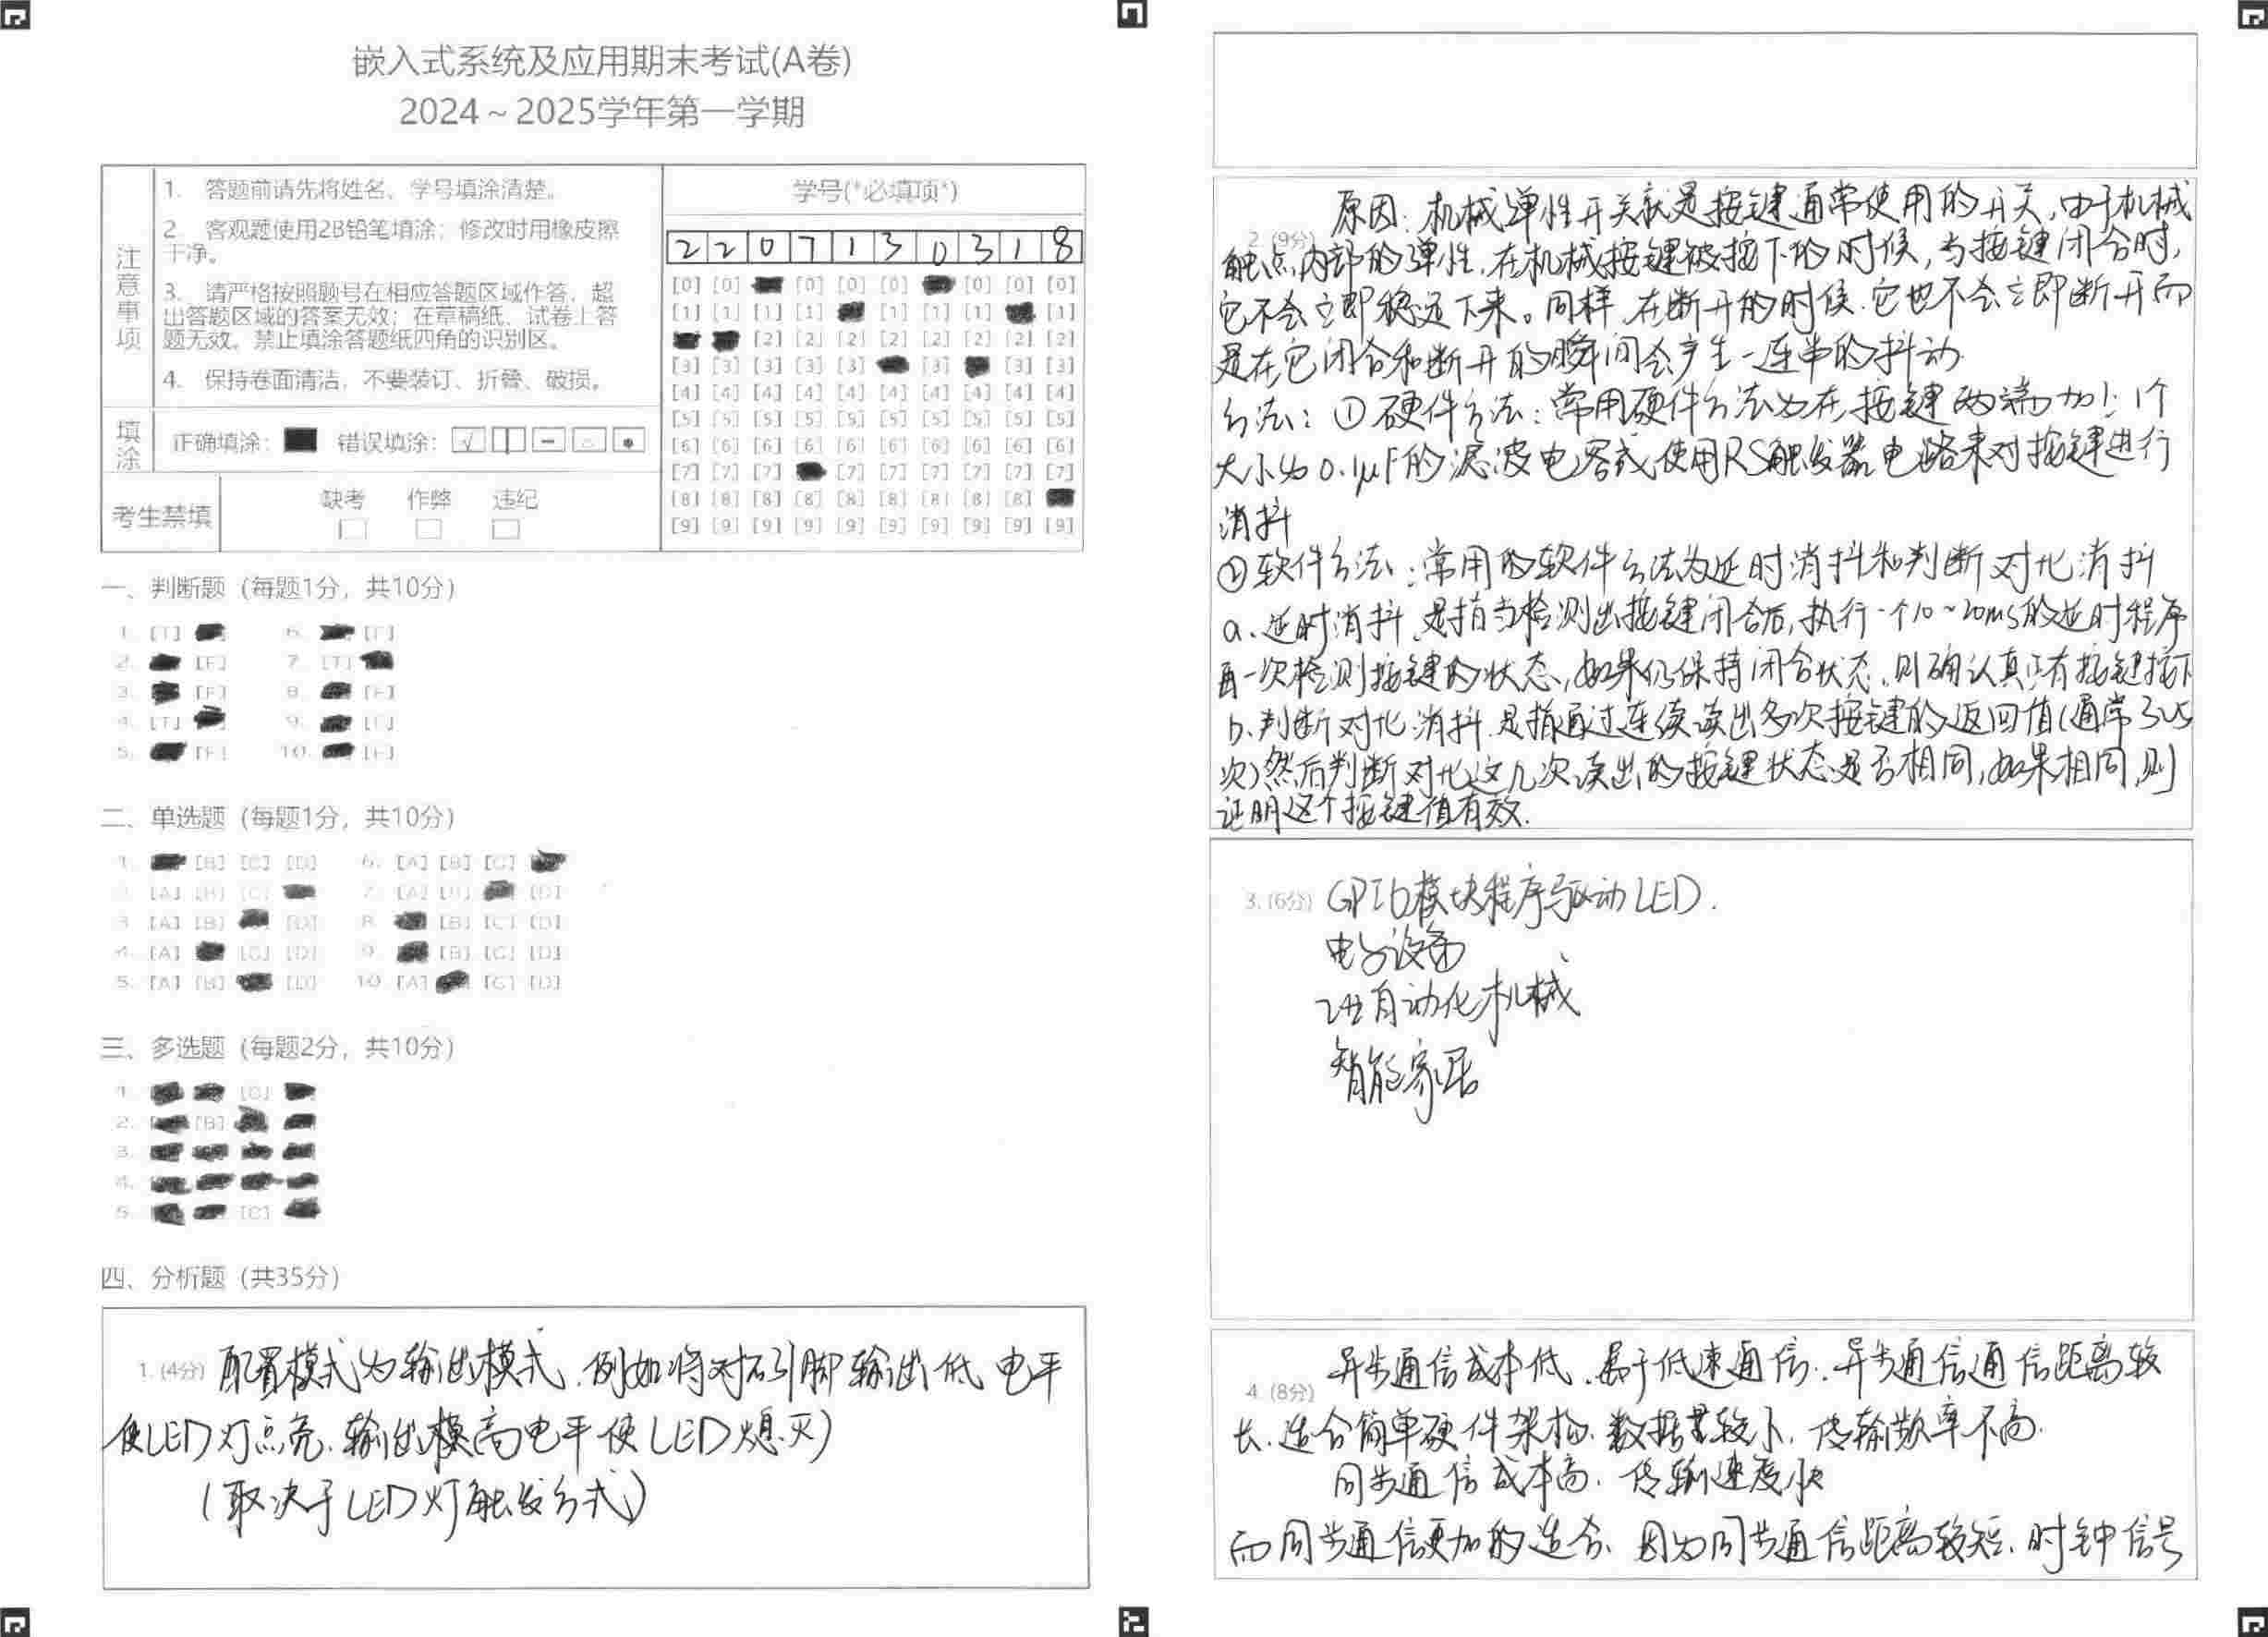 嵌入式系统及应用期末考试(A卷)
2024～2025学年第一学期
注意事项
1. 答题前请先将姓名、学号填涂清楚。
2. 客观题使用2B铅笔填涂；修改时用橡皮擦
干净。
3. 请严格按照题号在相应答题区域作答，超
出答题区域的答案无效；在草稿纸、试卷上答
题无效。禁止填涂答题纸四角的识别区。
4. 保持卷面清洁，不要装订、折叠、破损。
填涂 正确填涂： 错误填涂：
考生禁填 缺考 作弊 违纪
学号(*必填项*)
2 2 0 7 1 3 0 3 1 8
[0] [0] [0] [0] [0] [0] [0] [0]
[1] [1] [1] [1] [1] [1] [1] [1]
[2] [2] [2] [2] [2] [2] [2] [2]
[3] [3] [3] [3] [3] [3] [3] [3]
[4] [4] [4] [4] [4] [4] [4] [4] [4] [4]
[5] [5] [5] [5] [5] [5] [5] [5] [5] [5]
[6] [6] [6] [6] [6] [6] [6] [6] [6] [6]
[7] [7] [7] [7] [7] [7] [7] [7] [7]
[8] [8] [8] [8] [8] [8] [8] [8] [8]
[9] [9] [9] [9] [9] [9] [9] [9] [9] [9]
一、判断题 (每题1分，共10分)
1. [T] 6. [F]
2. [F] 7. [T]
3. [F] 8. [F]
4. [T] 9. [F]
5. [F] 10. [F]
二、单选题 (每题1分，共10分)
1. [B] [C] [D] 6. [A] [B] [C]
2. [A] [B] [C] 7. [A] [B] [D]
3. [A] [B] [D] 8. [B] [C] [D]
4. [A] [C] [D] 9. [B] [C] [D]
5. [A] [B] [D] 10. [A] [C] [D]
三、多选题 (每题2分，共10分)
1. [C]
2. [B]
3.
4.
5. [C]
四、分析题 (共35分)
1. (4分) 配置模式为输出模式.例如将对应引脚输出低电平
使LED灯点亮.输出模高电平使LED熄灭)
(取决于LED灯触发方式)
原因: 机械弹性开关就是按键通常使用的开关,由于机械
2. (9分) 触点内部的弹性,在机械按键被按下的时候,当按键闭合时,
它不会立即稳定下来。同样,在断开的时候.它也不会立即断开而
是在它闭合和断开的瞬间会产生一连串的抖动
方法: ①硬件方法: 常用硬件方法为在按键两端加上1个
大小为0.1μF的滤波电容或使用RS触发器电路来对按键进行
消抖
②软件方法: 常用的软件方法为延时消抖和判断对比消抖
a.延时消抖.是指当检测出按键闭合后,执行一个10~20ms的延时程序
再一次检测按键的状态,如果仍保持闭合状态.则确认真正有按键按下
b.判断对比消抖.是指通过连续读出多次按键的返回值(通常3~5
次)然后判断对比这几次读出的按键状态是否相同,如果相同,则
证明这个按键值有效.
3. (6分) GPIO模块程序驱动LED.
电子设备
工业自动化机械
智能家居
异步通信成本低.属于低速通信.异步通信通信距离较
4. (8分) 长.适合简单硬件架构.数据量较小.传输频率不高.
同步通信成本高.传输速度快
而同步通信更加的适合.因为同步通信距离较短.时钟信号